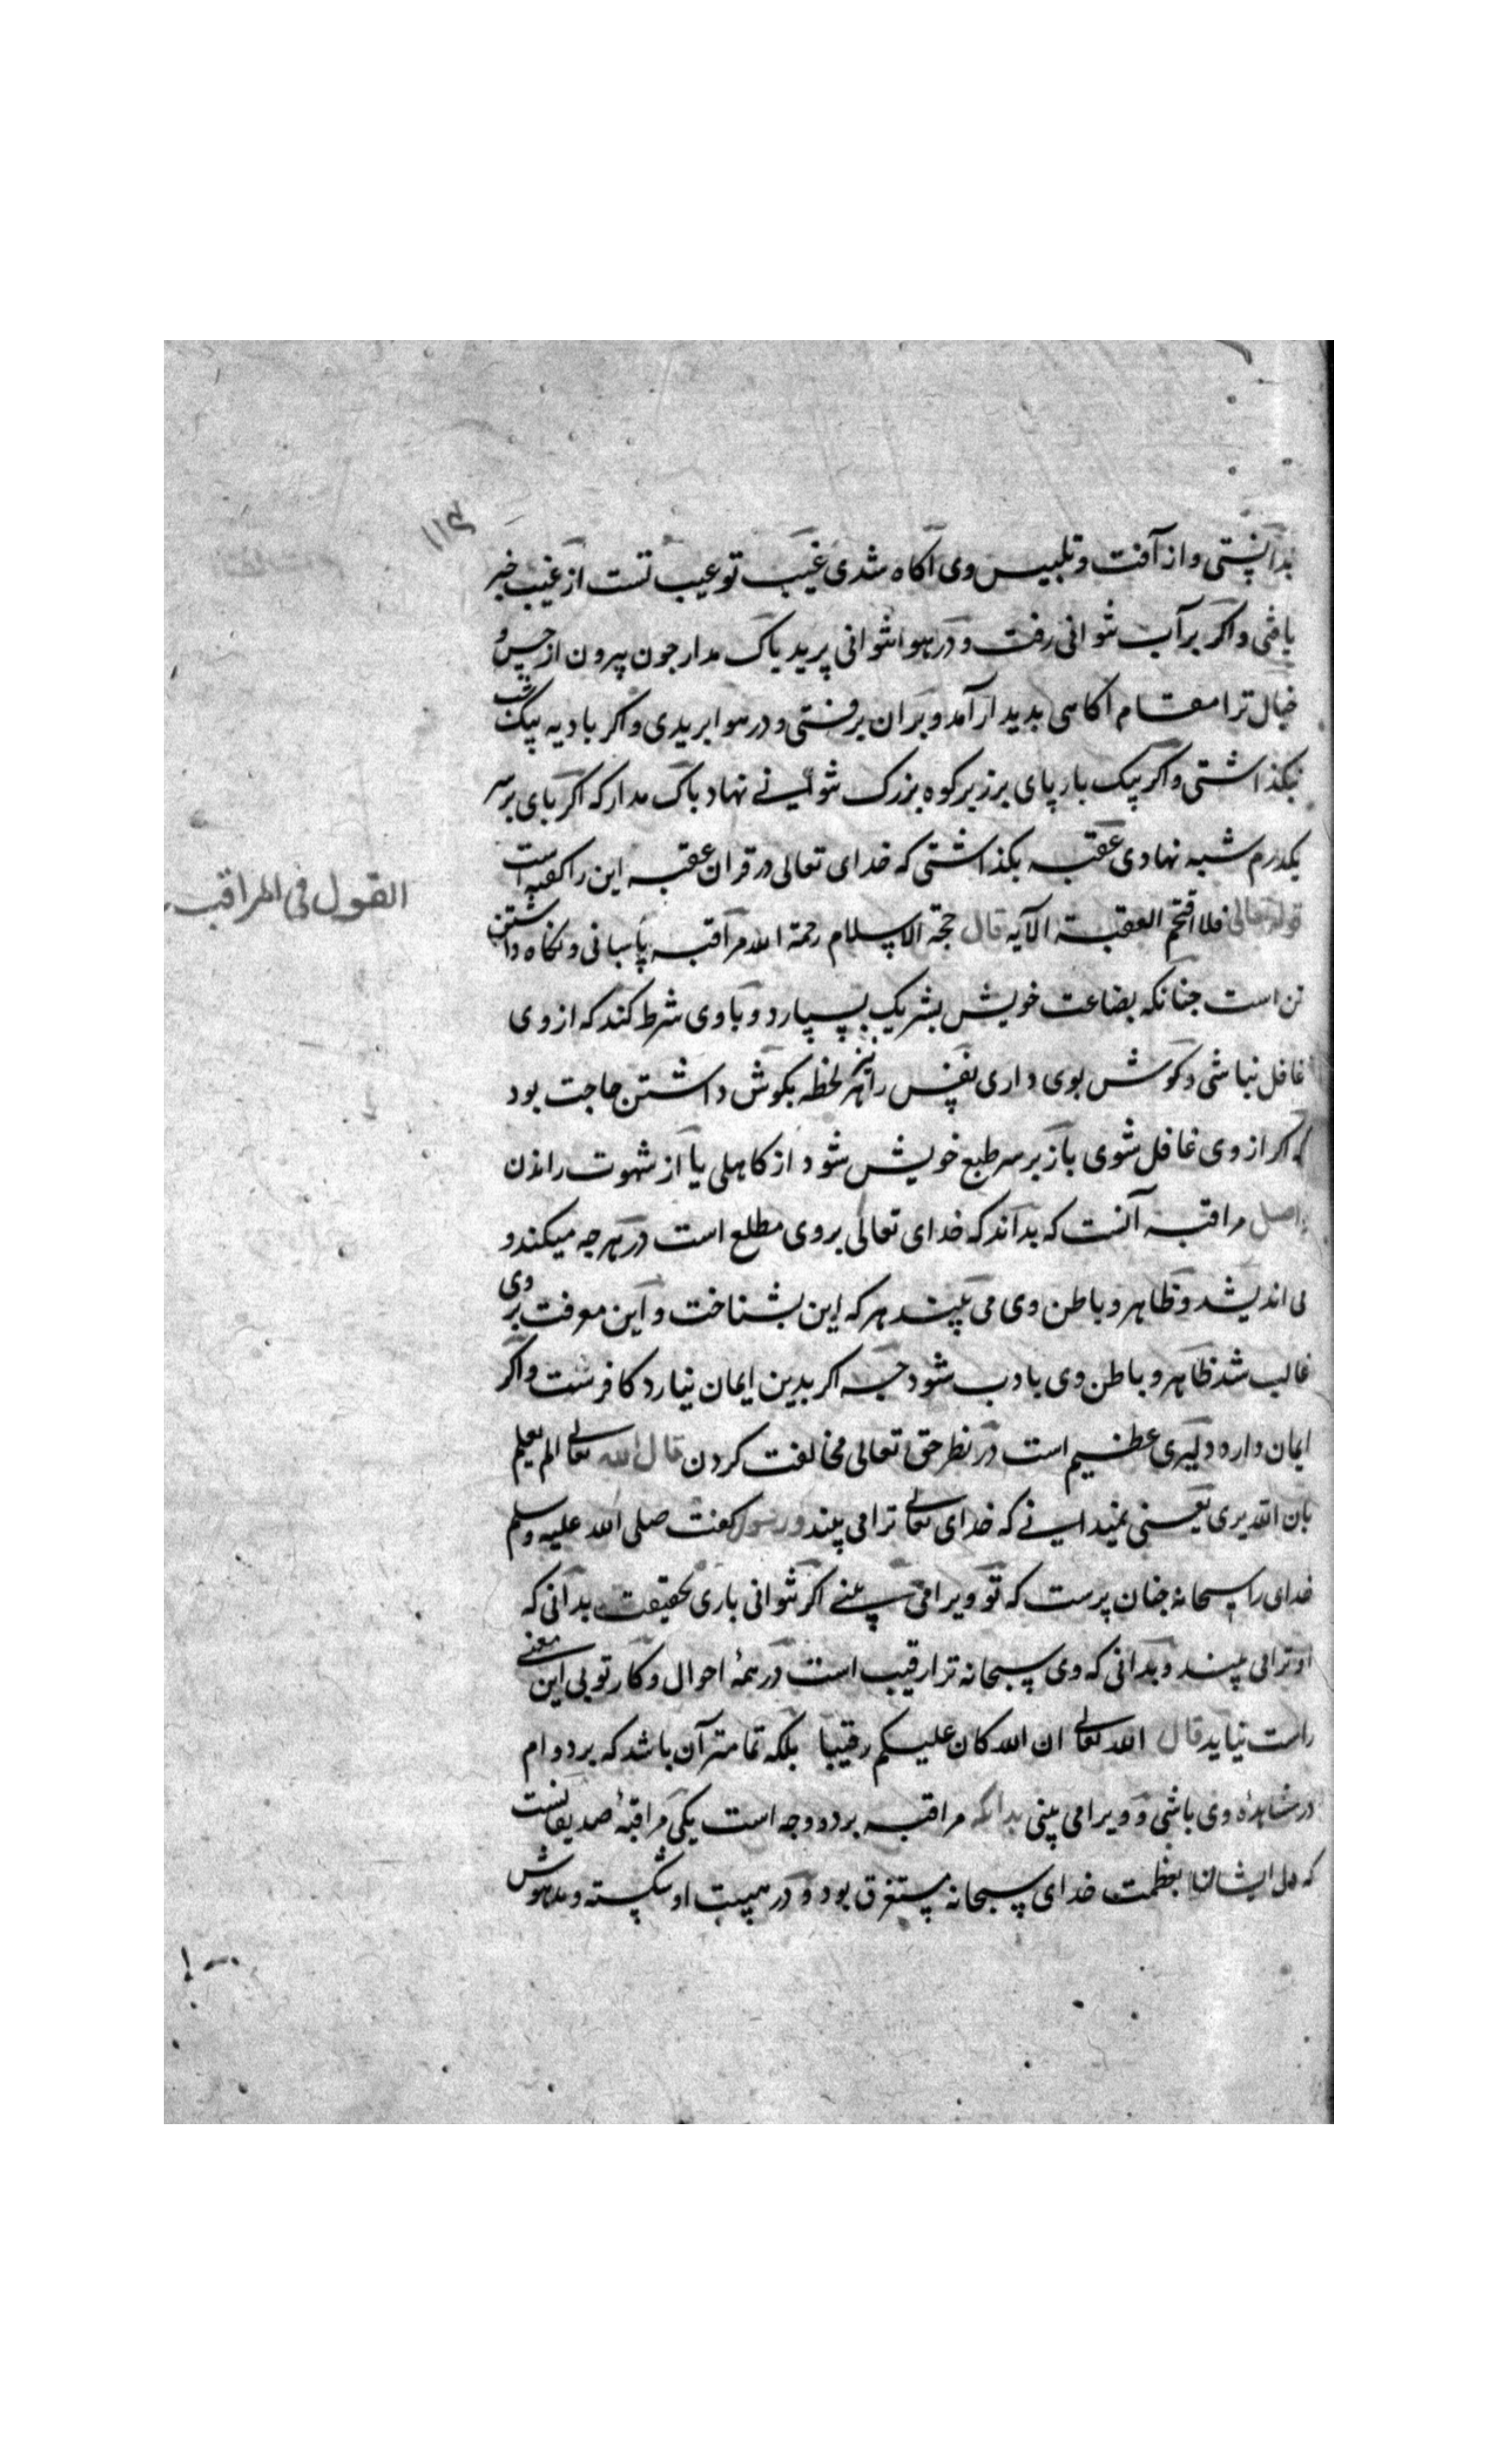 ۱۱۴
بدانستی و از آفت و تلبیس وی آکاه شدی غیب تو عیب تست از غیب خبر
یافتی و اکر بر آب نتوانی رفت و در هوا نتوانی پرید باک مدار جون بیرون از حس و
خیال ترا مقام اکاهی بدیدار آمد و بر ان برفتی و در هوا بریدی و اکر بادیه بیک شب
نکذاشتی و اکر بیک بار پای بر زبر کوه بزرک نتوانی نهاد باک مدار که اکر بای بر سر
یکدرم شبه نهادی عقبه بکذاشتی که خدای تعالی در قران عقبه این را کفته است
قوله تعالی فلا اقتحم العقبة الآیه قال حجة الاسلام رحمة الله مراقبه پاسبانی و نکاه داشتن
تن است جنانکه بضاعت خویش بشریک بسپارد و با وی شرط کند که از وی
غافل نباشی و کوش بوی داری نفس را نیز هر لحظه بکوش داشتن حاجت بود
که اکر از وی غافل شوی باز بر سر طبع خویش شود از کاهلی یا از شهوت راندن
و اصل مراقبه آنست که بداند که خدای تعالی بر وی مطلع است در هرجه میکند و
می اندیشد و ظاهر و باطن وی می بیند هر که این بشناخت و این معرفت بر وی
غالب شد ظاهر و باطن وی با دب شود جه اکر بدین ایمان نیارد کافرست و اکر
ایمان دارد دلیری عظیم است در نظر حق تعالی مخالفت کردن قال الله تعالی الم یعلم
بان الله یری یعنی نمیدانی که خدای تعالی ترا می بیند و رسول کفت صلی الله علیه وسلم
خدای را سبحانه جنان پرست که تو ویرا می بینی اکر نتوانی باری بحقیقت بدانی که
او ترا می بیند و بدانی که وی سبحانه ترا رقیب است در همهٔ احوال و کار تو بی این معنی
راست نیاید قال الله تعالی ان الله کان علیکم رقیبا بلکه تمامتر آن باشد که بر دوام
در مشاهدهٔ وی باشی و ویرا می بینی بدانکه مراقبه بر دو وجه است یکی مراقبهٔ صدیقانست
که دل ایشان بعظمت خدای سبحانه مستغرق بود و در هیبت او شکسته و مدهوش
القول فی المراقبه